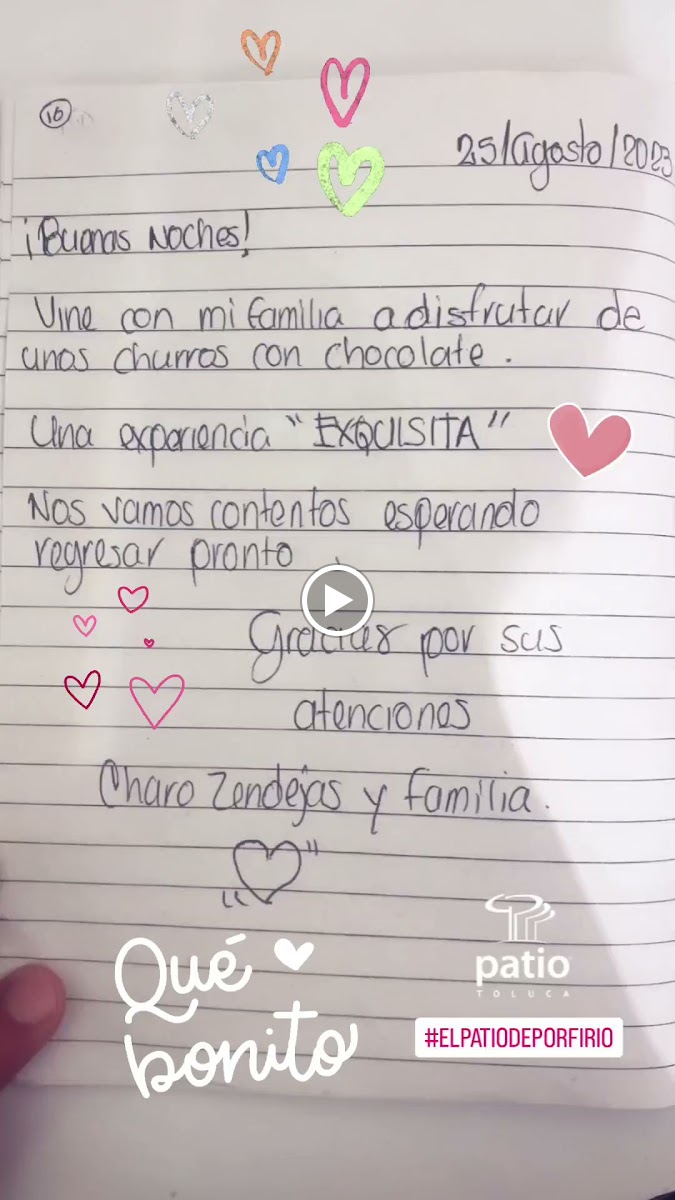 16
25/agosto/2023
¡Buenas Noches!
Vine con mi familia a disfrutar de
unos churros con chocolate.
Una experiencia "EXQUISITA"
Nos vamos contentos esperando
regresar pronto
Gracias por sus
atenciones
Charo Zendejas y familia.
Qué
bonito
patio
TOLUCA
#ELPATIODEPORFIRIO